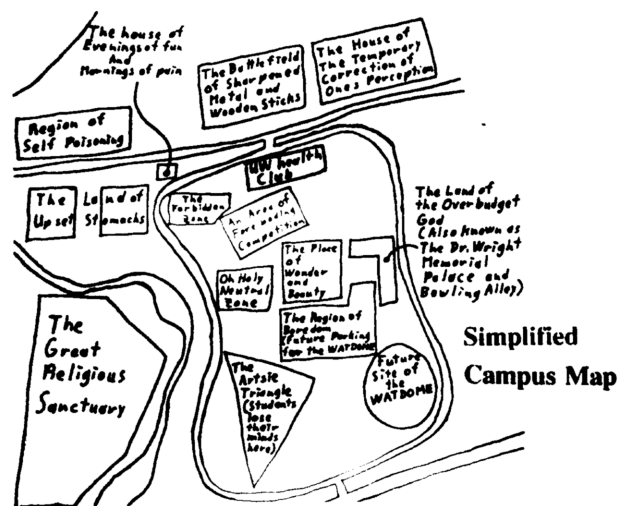 The house of
Evenings of fun
And
Mornings of pain
The Battlefield
of Sharpened
Metal and
Wooden Sticks
The House of
The Temporary
Correction of
Ones Perception
Region of
Self Poisoning
UW health
Club
The
Upset
Land of
Stomachs
The
Forbidden
Zone
An Area of
Foreboding
Competition
The Land of
the Overbudget
God
(Also known as
The Dr. Wright
Memorial
Palace and
Bowling Alley)
The Place
of
Wonder
and
Beauty
Oh Holy
Neutral
Zone
The Region of
Boredom
(Future Parking
for the WATDOME)
The
Great
Religious
Sanctuary
The
Artsie
Triangle
(Students
lose
their
minds
here)
Future
Site of
the
WATDOME
Simplified
Campus Map